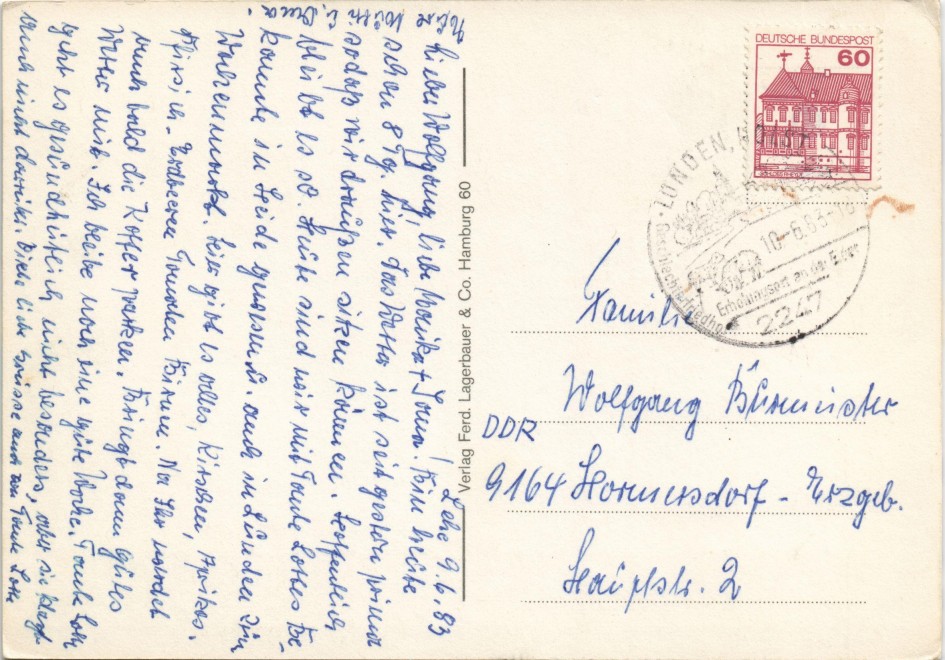 Lehe 9.6.83
Lieber Wolfgang, liebe Monika + Jana! Bin heute
schon 8 Tg. hier. Das Wetter ist seit gestern prima
sodaß wir draußen sitzen können. Hoffentlich
bleibt es so. Heute sind wir mit Tante Lottes Be-
kannte in Heide gewesen u. auch in Lunden zum
Wochenmarkt. Hier gibt es alles, Kirschen, Aprikos.
Pfirsich - Erdbeeren Tomaten Birnen. Na Ihr werdet
auch bald die Koffer packen. Bringt dann gutes
Wetter mit. Ich bleibe noch eine gute Woche. Tante Lotte
geht es gesundheitlich nicht besonders, aber sie klagt
auch nicht darüber. Viele liebe Grüsse auch von Tante Lotte
Eure Mutti u. Oma.
Verlag Ferd. Lagerbauer & Co. Hamburg 60
DEUTSCHE BUNDESPOST
60
LUNDEN, HOLST
10-6.83-16
Geschlechterfriedhof
Erholungsort an der Eider
2247
Familie
Wolfgang Bürmeister
DDR
9164 Hormersdorf - Erzgeb.
Hauptstr. 2